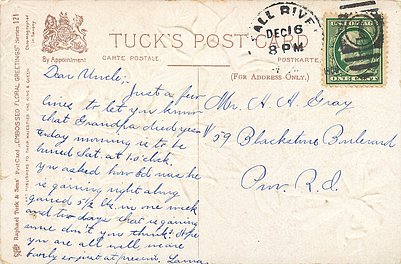 Raphael Tuck & Sons' Post Card "EMBOSSED FLORAL GREETINGS" Series 121
By Appointment
TUCK'S POST CARD
CARTE POSTALE
POSTKARTE
(FOR ADDRESS ONLY.)
FALL RIVER
DEC 16
8 PM
Dear Uncle;
Just a few
lines to let you know
that Grandpa died yes-
terday morning is to be
buried Sat. at 2 o'clock.
you asked how Ed was he
is gaining right along
gained 5½ lb. in one week
and two days that is gaining
some don't you think? Hope
you are all well, we are
fairly so just at present.
Mr. H. A. Gray
59 Blackstone Boulevard
Prov. R.I.